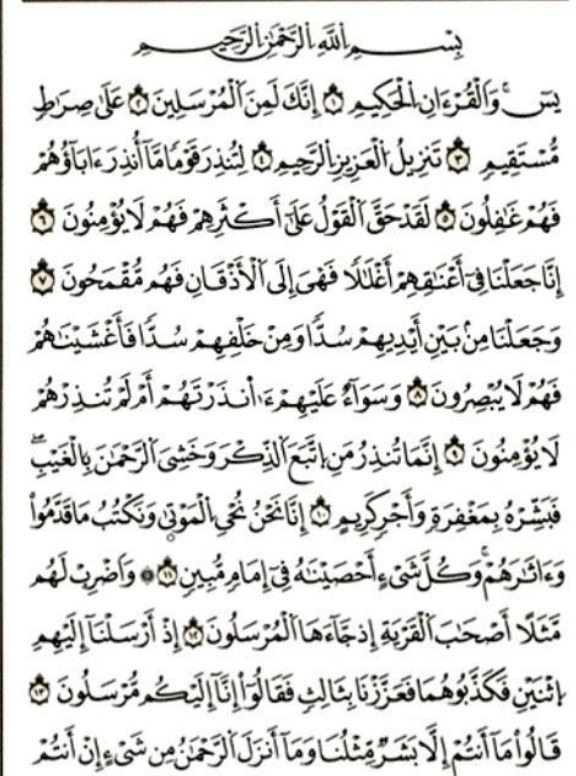 بِسْمِ اِ۬للَّهِ اِ۬لرَّحْمَٰنِ اِ۬لرَّحِيمِ
يسٓۚ وَالْقُرْءَانِ اِ۬لْحَكِيمِ ١ إِنَّكَ لَمِنَ اَ۬لْمُرْسَلِينَ ٢ عَلَىٰ صِرَٰطٍ
مُّسْتَقِيمٍ ٣ تَنزِيلُ اُ۬لْعَزِيزِ اِ۬لرَّحِيمِ ٤ لِتُنذِرَ قَوْمًا مَّآ أُنذِرَ ءَابَآؤُهُمْ
فَهُمْ غَٰفِلُونَ ٥ لَقَدْ حَقَّ اَ۬لْقَوْلُ عَلَىٰٓ أَكْثَرِهِمْ فَهُمْ لَا يُؤْمِنُونَ ٦
إِنَّا جَعَلْنَا فِىٓ أَعْنَٰقِهِمْ أَغْلَٰلًا فَهْىَ إِلَى اَ۬لْأَذْقَانِ فَهُم مُّقْمَحُونَ ٧
وَجَعَلْنَا مِنۢ بَيْنِ أَيْدِيهِمْ سُدًّا وَمِنْ خَلْفِهِمْ سُدًّا فَأَغْشَيْنَٰهُمْ
فَهُمْ لَا يُبْصِرُونَ ٨ وَسَوَآءٌ عَلَيْهِمْ ءَا۬نذَرْتَهُمْ أَمْ لَمْ تُنذِرْهُمْ
لَا يُؤْمِنُونَ ٩ إِنَّمَا تُنذِرُ مَنِ اِ۪تَّبَعَ اَ۬لذِّكْرَ وَخَشِىَ اَ۬لرَّحْمَٰنَ بِالْغَيْبِۖ
فَبَشِّرْهُ بِمَغْفِرَةٍ وَأَجْرٍ كَرِيمٍ ١٠ إِنَّا نَحْنُ نُحْىِ اِ۬لْمَوْتَىٰ وَنَكْتُبُ مَا قَدَّمُوا۟
وَءَاثَٰرَهُمْۚ وَكُلَّ شَىْءٍ أَحْصَيْنَٰهُ فِىٓ إِمَامٍ مُّبِينٍ ١١ ۞ وَاضْرِبْ لَهُم
مَّثَلًا أَصْحَٰبَ اَ۬لْقَرْيَةِ إِذ جَّآءَهَا اَ۬لْمُرْسَلُونَ ١٢ إِذْ أَرْسَلْنَآ إِلَيْهِمِ
اِ۪ثْنَيْنِ فَكَذَّبُوهُمَا فَعَزَّزْنَا بِثَالِثٍ فَقَالُوٓا۟ إِنَّآ إِلَيْكُم مُّرْسَلُونَ ١٣
قَالُوا۟ مَآ أَنتُمْ إِلَّا بَشَرٌ مِّثْلُنَا وَمَآ أَنزَلَ اَ۬لرَّحْمَٰنُ مِن شَىْءٍ إِنْ أَنتُمْ